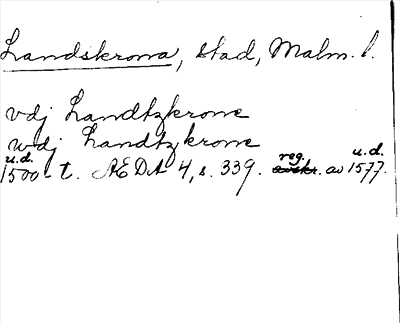 Landskrona, stad, Malm. l.
vdj Landtzkrone
wdj Landtzkrone
u.d. reg. u.d.
1500-t. ÆDA 4, s. 339. avskr. av 1577.